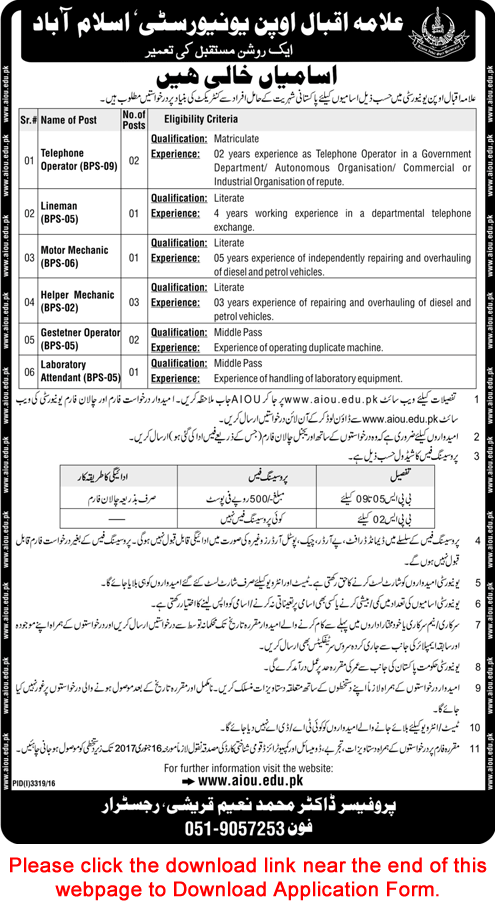 علامہ اقبال اوپن یونیورسٹی، اسلام آباد
ایک روشن مستقبل کی تعمیر
اسامیاں خالی ہیں
علامہ اقبال اوپن یونیورسٹی میں حسب ذیل اسامیوں کیلئے پاکستانی شہریت کے حامل افراد سے کنٹریکٹ کی بنیاد پر درخواستیں مطلوب ہیں۔
Sr.# Name of Post No.of Posts Eligibility Criteria
01 Telephone Operator (BPS-09) 02
Qualification: Matriculate
Experience: 02 years experience as Telephone Operator in a Government
Department/ Autonomous Organisation/ Commercial or
Industrial Organisation of repute.
02 Lineman (BPS-05) 01
Qualification: Literate
Experience: 4 years working experience in a departmental telephone
exchange.
03 Motor Mechanic (BPS-06) 01
Qualification: Literate
Experience: 05 years experience of independently repairing and overhauling
of diesel and petrol vehicles.
04 Helper Mechanic (BPS-02) 03
Qualification: Literate
Experience: 03 years experience of repairing and overhauling of diesel and
petrol vehicles.
05 Gestetner Operator (BPS-05) 02
Qualification: Middle Pass
Experience: Experience of operating duplicate machine.
06 Laboratory Attendant (BPS-05) 01
Qualification: Middle Pass
Experience: Experience of handling of laboratory equipment.
1 تفصیلات کیلئے ویب سائٹ www.aiou.edu.pk پر جا کر AIOU جاب ملاحظہ کریں۔ امیدوار درخواست فارم اور چالان فارم یونیورسٹی کی ویب
سائٹ www.aiou.edu.pk سے ڈاؤن لوڈ کر کے آن لائن درخواستیں ارسال کریں۔
2 امیدواروں کیلئے ضروری ہے کہ وہ درخواستوں کے ساتھ اوریجنل چالان فارم (جس کے ذریعے فیس ادا کی گئی ہو) ارسال کریں۔
3 پروسیسنگ فیس کا شیڈول حسب ذیل ہے۔
تفصیل پروسیسنگ فیس ادائیگی کا طریقہ کار
بی پی ایس 05 تا 09 کیلئے مبلغ -/500 روپے فی پوسٹ صرف بذریعہ چالان فارم
بی پی ایس 02 کیلئے کوئی پروسیسنگ فیس نہیں ——
4 پروسیسنگ فیس کے سلسلے میں ڈیمانڈ ڈرافٹ، پے آرڈر، چیک، پوسٹل آرڈرز وغیرہ کی صورت میں ادائیگی قابل قبول نہیں ہوگی۔ پروسیسنگ فیس کے بغیر درخواست فارم قابل
قبول نہیں ہوں گے۔
5 یونیورسٹی امیدواروں کو شارٹ لسٹ کرنے کا حق رکھتی ہے۔ ٹیسٹ اور انٹرویو کیلئے صرف شارٹ لسٹ کئے گئے امیدواروں کو ہی بلایا جائے گا۔
6 یونیورسٹی اسامیوں کی تعداد میں کمی/بیشی کرنے یا کسی بھی اسامی پر تعیناتی نہ کرنے/اسامی کو واپس لینے کا اختیار رکھتی ہے۔
7 سرکاری/نیم سرکاری یا خود مختار اداروں میں پہلے سے کام کرنے والے امیدوار مقررہ تاریخ تک محکمانہ توسط سے درخواستیں ارسال کریں اور درخواستوں کے ہمراہ اپنے موجودہ
اور سابقہ ایمپلائر کی جانب سے جاری کردہ سروس سرٹیفکیٹس بھی ارسال کریں۔
8 یونیورسٹی حکومت پاکستان کی جانب سے عمر کی مقررہ حد پر عمل درآمد کرے گی۔
9 امیدوار درخواستوں کے ہمراہ لازماً اپنے دستخطوں کے ساتھ متعلقہ دستاویزات منسلک کریں۔ نامکمل اور مقررہ تاریخ کے بعد موصول ہونے والی درخواستوں پر غور نہیں کیا
جائے گا۔
10 ٹیسٹ/انٹرویو کیلئے بلائے جانے والے امیدواروں کو کوئی ٹی اے/ڈی اے نہیں دیا جائے گا۔
11 مقررہ فارم پر درخواستوں کے ہمراہ دستاویزات، تجربے، ڈومیسائل اور کمپیوٹرائزڈ قومی شناختی کارڈ کی مصدقہ نقول لازماً مورخہ 16 جنوری 2017 تک زیر دستخطی کو موصول ہو جانی چاہئیں۔
For further information visit the website:
www.aiou.edu.pk
PID(I)3319/16
پروفیسر ڈاکٹر محمد نعیم قریشی، رجسٹرار
فون 051-9057253
www.aiou.edu.pk www.aiou.edu.pk www.aiou.edu.pk www.aiou.edu.pk www.aiou.edu.pk
Please click the download link near the end of this
webpage to Download Application Form.